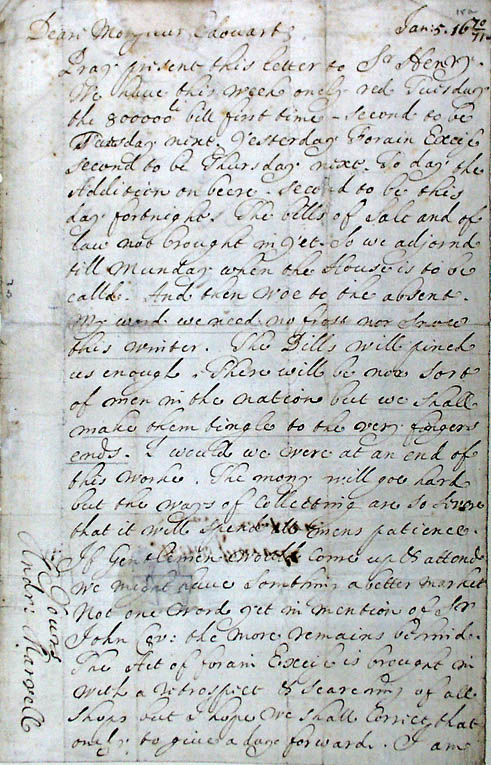 Dear Monsieur Edouart, Jan: 5. 16 70/71
Pray present this letter to Sr Henry.
We have this week onely red Tuesday
the 800000 li bill first time - second to be
Tuesday next. Yesterday Forain Excise
second to be Thursday next. To day the
Addition on beere. second to be this
day fortnight. The bills of Salt and of
law not brought in yet. So we adjornd
till Munday when the House is to be
calld. And then woe to the absent.
My word we need no frost nor Snow
this winter. The Bills will pinch
us enough. There will be noe sort
of men in the nation but we shall
make them tingle to the very fingers
ends. I would we were at an end of
this worke. The mony will goe hard
but the ways of Collecting are so
that it will spend mens patience.
If Gentlemen would come up & attend
we might have somthing a better market
Not one word yet in mention of Sr
John &c: the more remains behind.
The Act of forain Excise is brought in
with a retrospect & searching of all
shops but I hope we shall correct that
onely to give a day forward. I am
Yours
Andr: Marvell